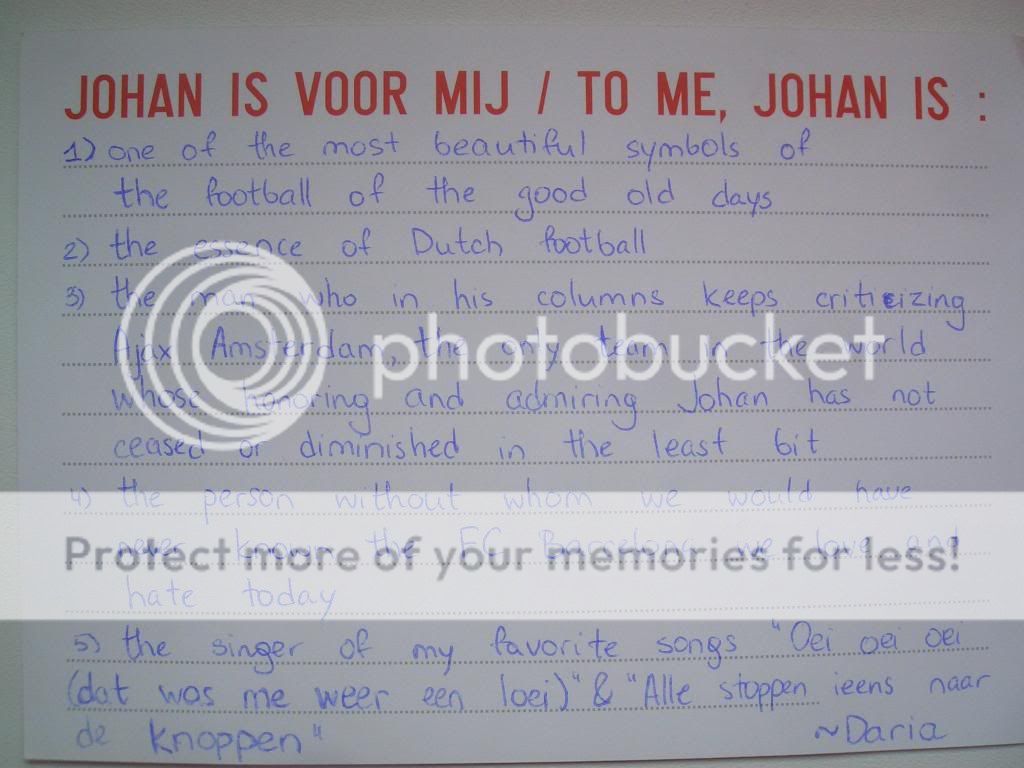 JOHAN IS VOOR MIJ / TO ME, JOHAN IS :
1) one of the most beautiful symbols of
the football of the good old days
2) the essence of Dutch football
3) the man who in his columns keeps criticizing
Ajax Amsterdam, the only team in the world
photobucket
whose honoring and admiring Johan has not
ceased or diminished in the least bit
4) the person without whom we would have
never known the FC Barcelona we love and
Protect more of your memories for less!
hate today
5) the singer of my favorite songs "Oei oei oei
(dat was me weer een loei)" & "Alle stoppen ieens naar
de knoppen"
~Daria